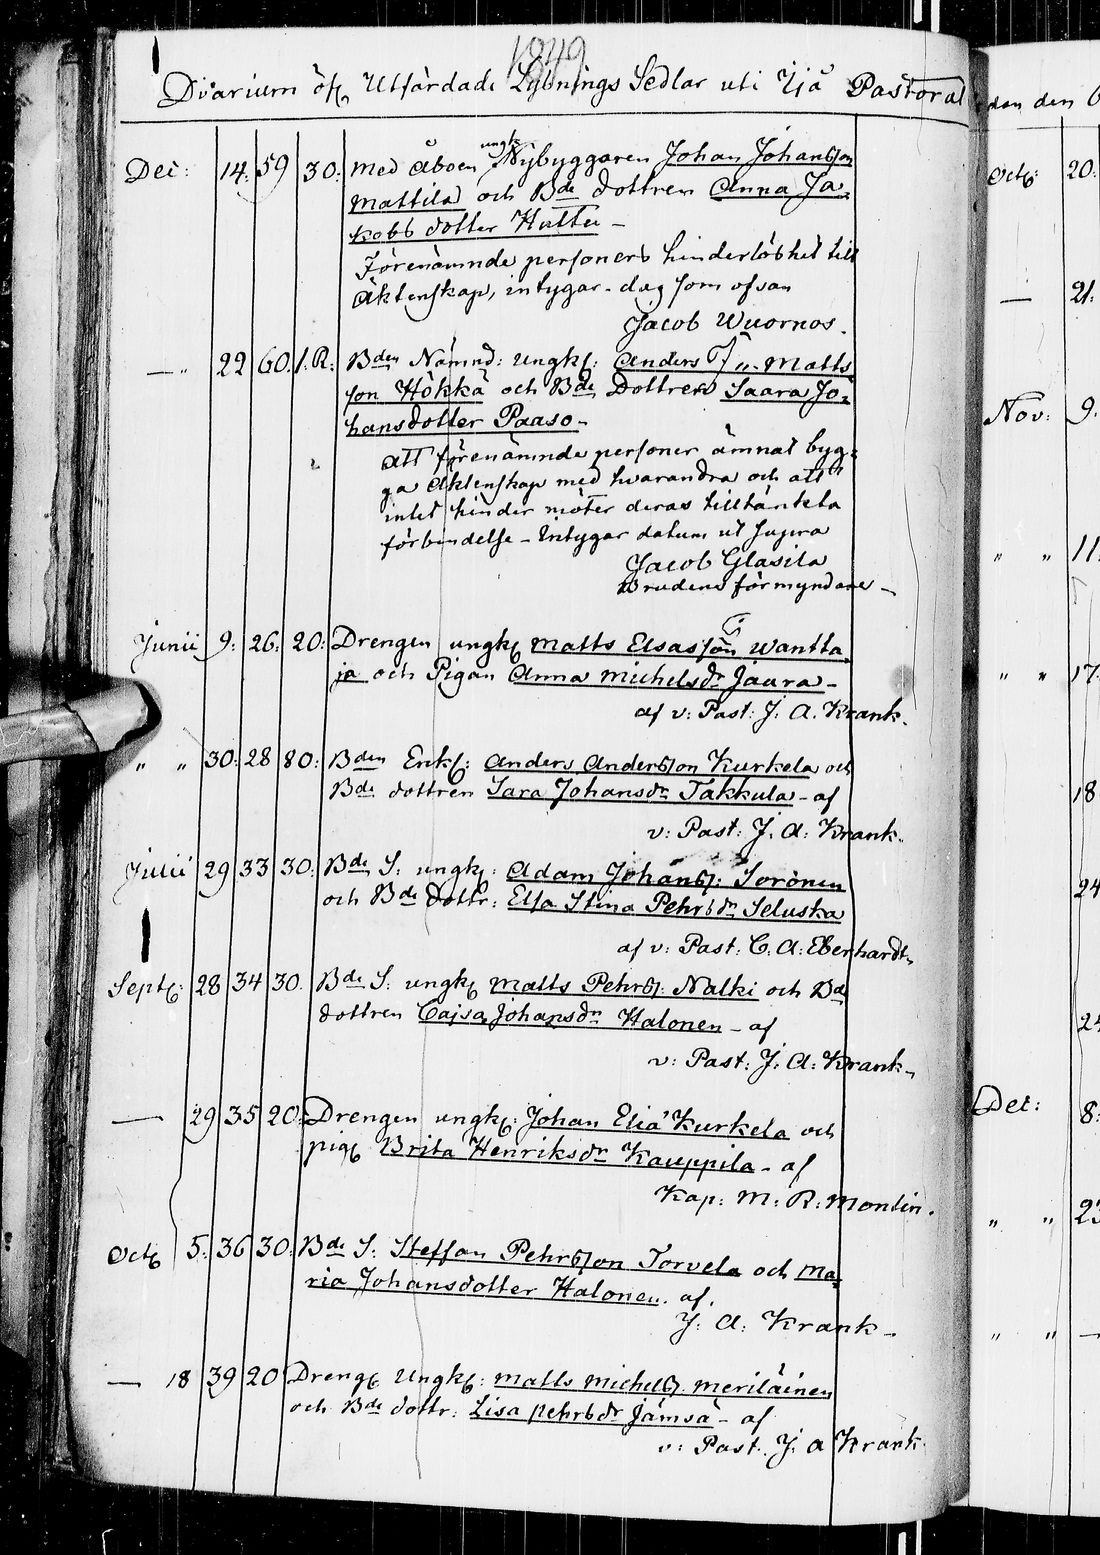 1849
Diarium öfv Utfärdade Lysnings Sedlar uti Ijå Pastorat
Dec: 14. 59 30. med åboen ungk Nybyggaren Johan Johansson
Mattila och Bde dottren Anna Ja-
kobs dotter Huttu -
Förenämnde personers hinderlöshet till
äktenskap, intygar - dag som ofvan
Jacob Wuornos.
— " 22 60. 1. R: Bden Nämnd: ungk: Anders Matts
son Hökkä och Bde Dottren Saara Jo-
hansdotter Paaso -
att förenämnde personer ämnat byg-
ga äktenskap med hvarandra och att
intet hinder möter deras tilltänkta
förbindelse - intygar datum ut supra
Jacob Glasila
Brudens förmyndare -
Junii 9: 26: 20: Drengen ungk Matts Elsasson Wantta-
ja och Pigan Anna Michelsdr Jaura -
af v: Past: J. A. Krank.
" " 30: 28 80: Bden Enkl: Anders Andersson Kurkela och
Bde dottren Sara Johansdr Takkula - af
v: Past: J. A: Krank.
Julii 29 33 30: Bde S: ungk: Adam Johans: Soronen
och Bde dottr: Elsa Stina Pehrsdr Seluska
af v: Past: C. A: Eberhardt,
Sept: 28 34 30. Bde S: ungk Matts Pehrs: Nalki och Bde
dottren Cajsa Johansdr Halonen - af
v: Past: J. A: Krank -
— 29 35 20: Drengen ungk: Johan Elia' Kurkela och
pig Brita Henriksdr Kauppila - af
Kap: M: R: Montin.
Oct 5: 36 30: Bde S: Steffan Pehrsson Torvela och Ma-
ria Johansdotter Halonen. af.
J: A: Krank -
— 18 39 20 Dreng Ungk: Matts Michels: Meriläinen
och Bde dottr: Lisa Pehrsdr Jämsä - af
v: Past. J. A Krank.
dan den
Oct: 20:
— 21.
Nov: 9.
" " 11.
" " 17.
18
24
24
Dec: 8:
" " 23
" " —